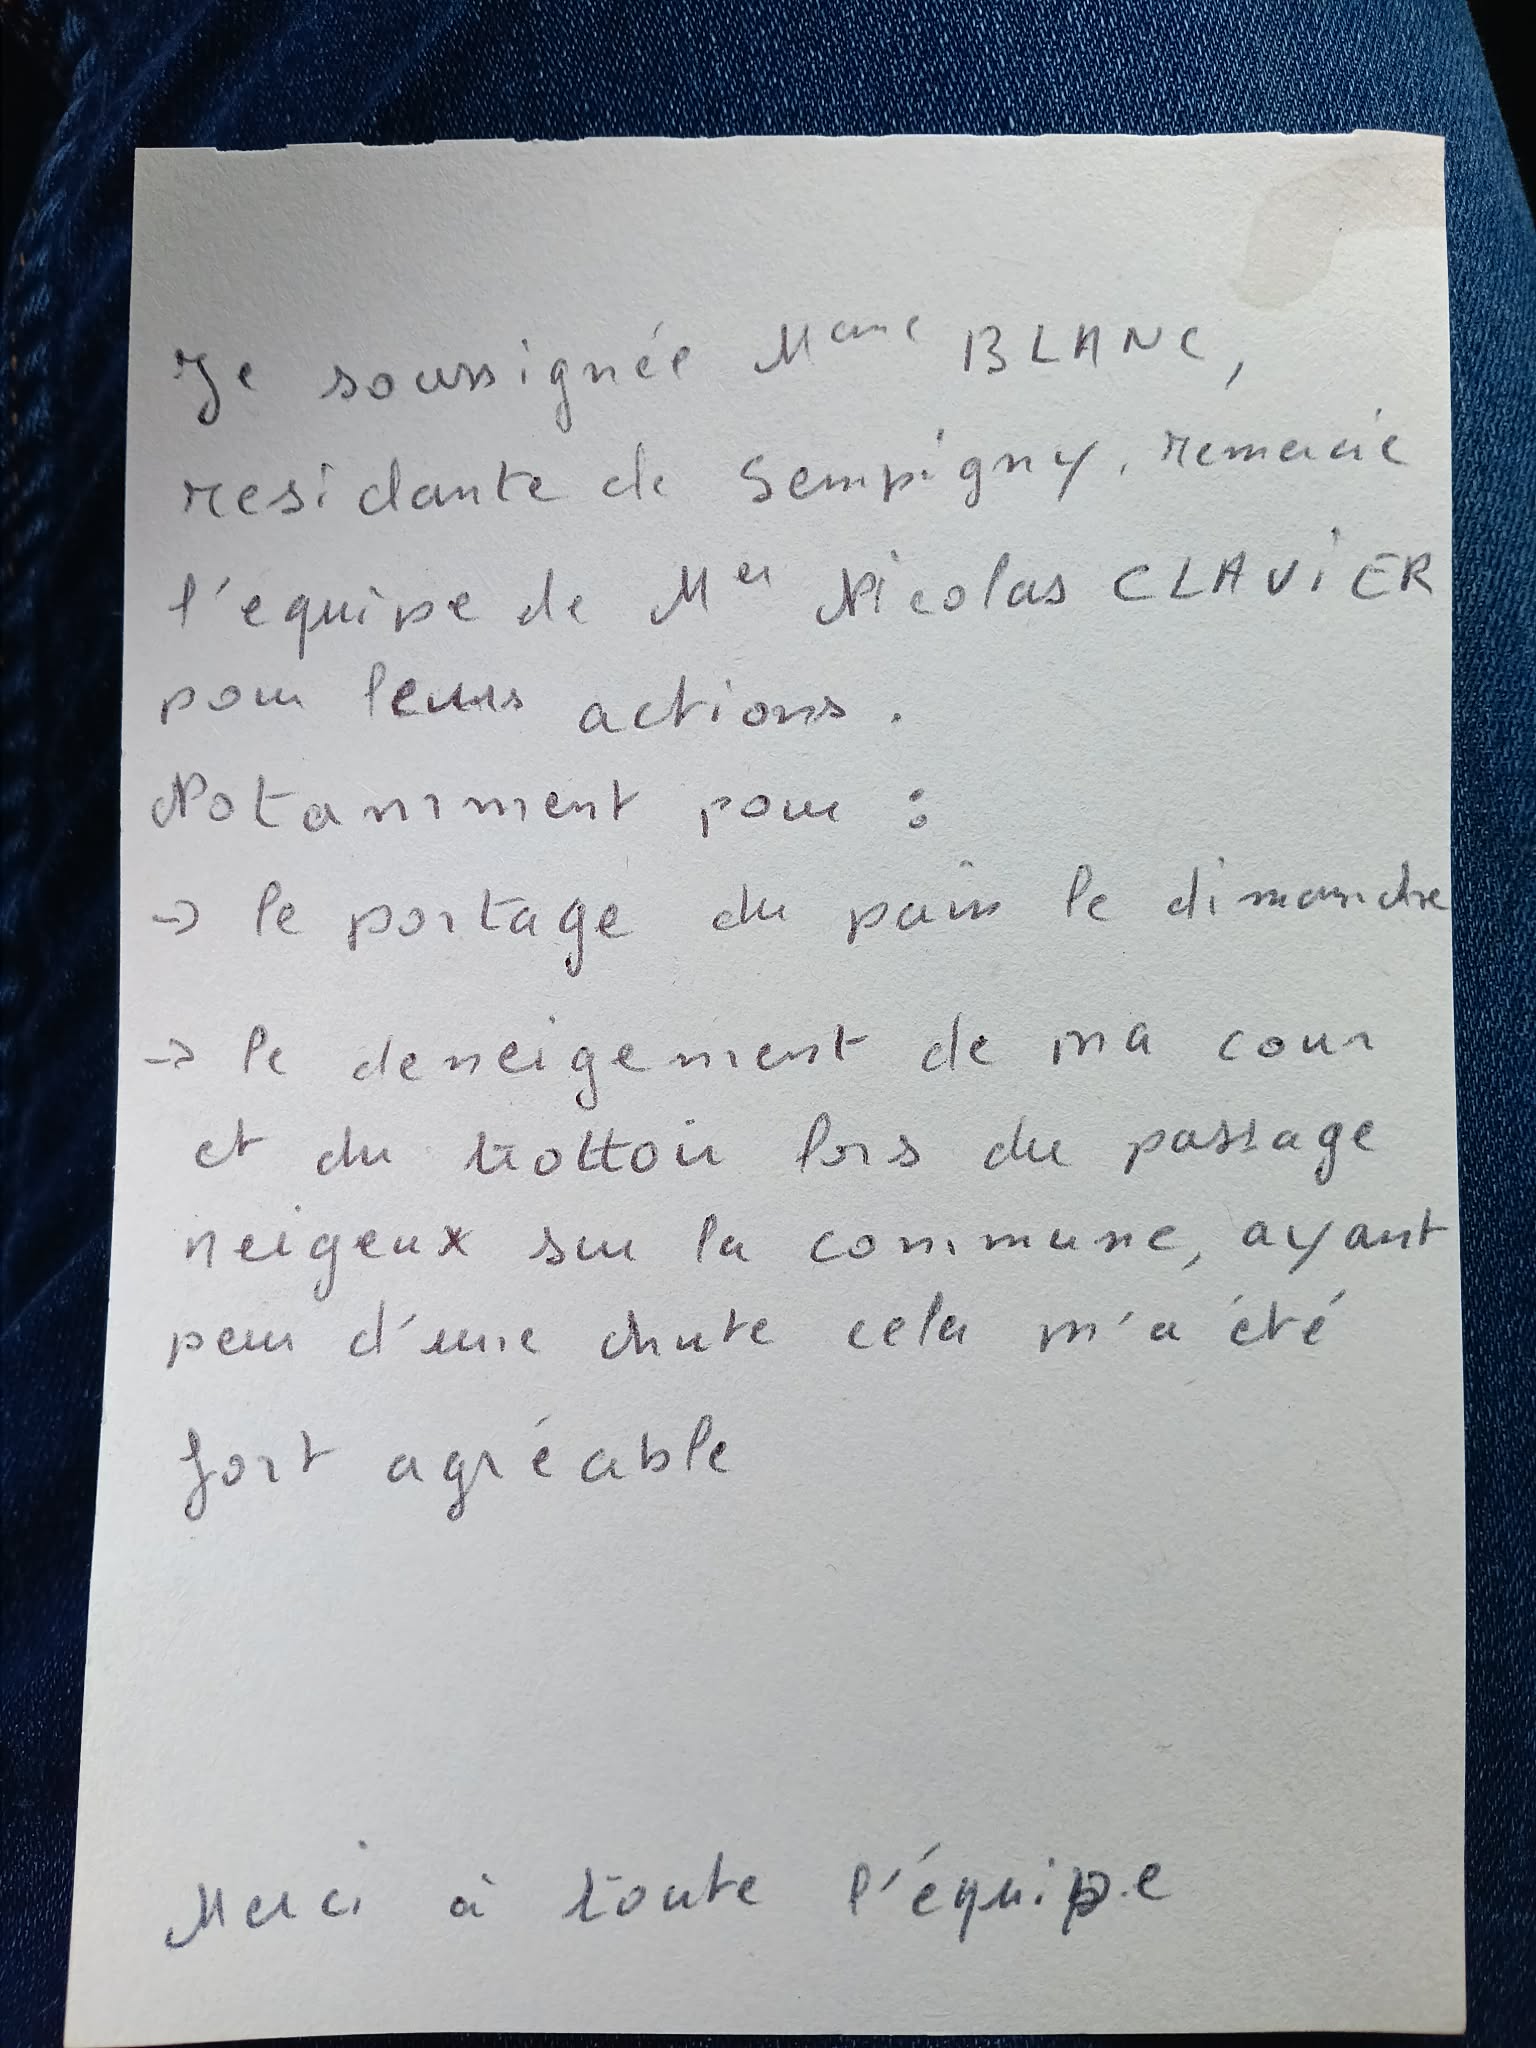 Je soussignée Mame BLANC,
residante de Sempigny, remercie
l'equipe de Mer Nicolas CLAViER
pour leurs actions.
Notamment pour :
→ le portage du pain le dimanche
→ le deneigement de ma cour
et du trottoir lors du passage
neigeux sur la commune, ayant
peur d'une chute cela m'a été
fort agréable
Merci à toute l'équipe